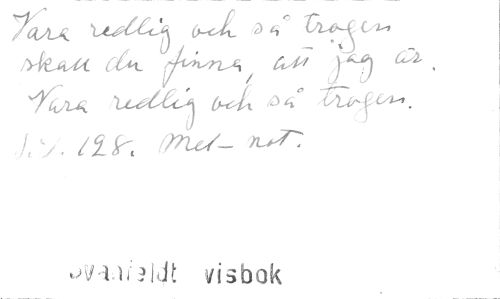 Vara redlig och så trogen
skall du finna, att jag är.
Vara redlig och så trogen.
128. Mel-not.
visbok